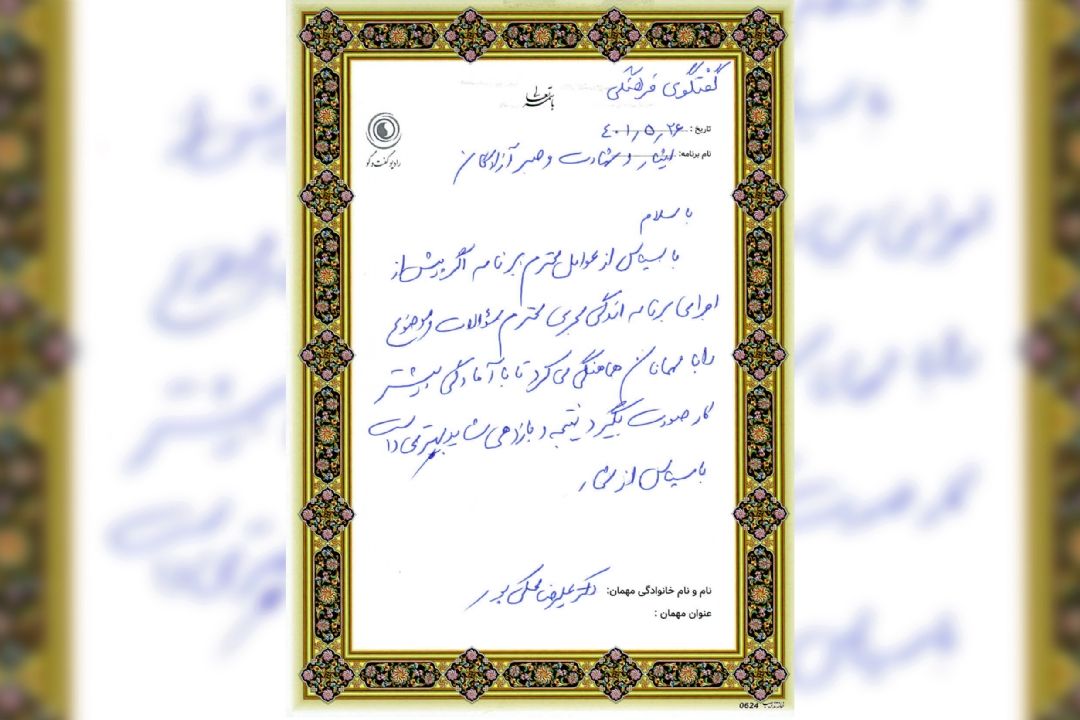 گفتگوی فرهنگی
باسمه تعالی
رادیو گفت و گو
تاریخ : ۴۰۱٫۵٫۲۶
نام برنامه: ایثار و شهادت و صبر آزادگان
با سلام
با سپاس از عوامل محترم برنامه اگر پیش از
اجرای برنامه اندکی مجری محترم سؤالات و موضوع
را با مهمانان هماهنگی می کرد تا با آمادگی بیشتر
کار صورت بگیرد نتیجه و بازدهی شاید بهتر می داشت
با سپاس از شما
نام و نام خانوادگی مهمان: دکتر علیرضا
عنوان مهمان :
0624